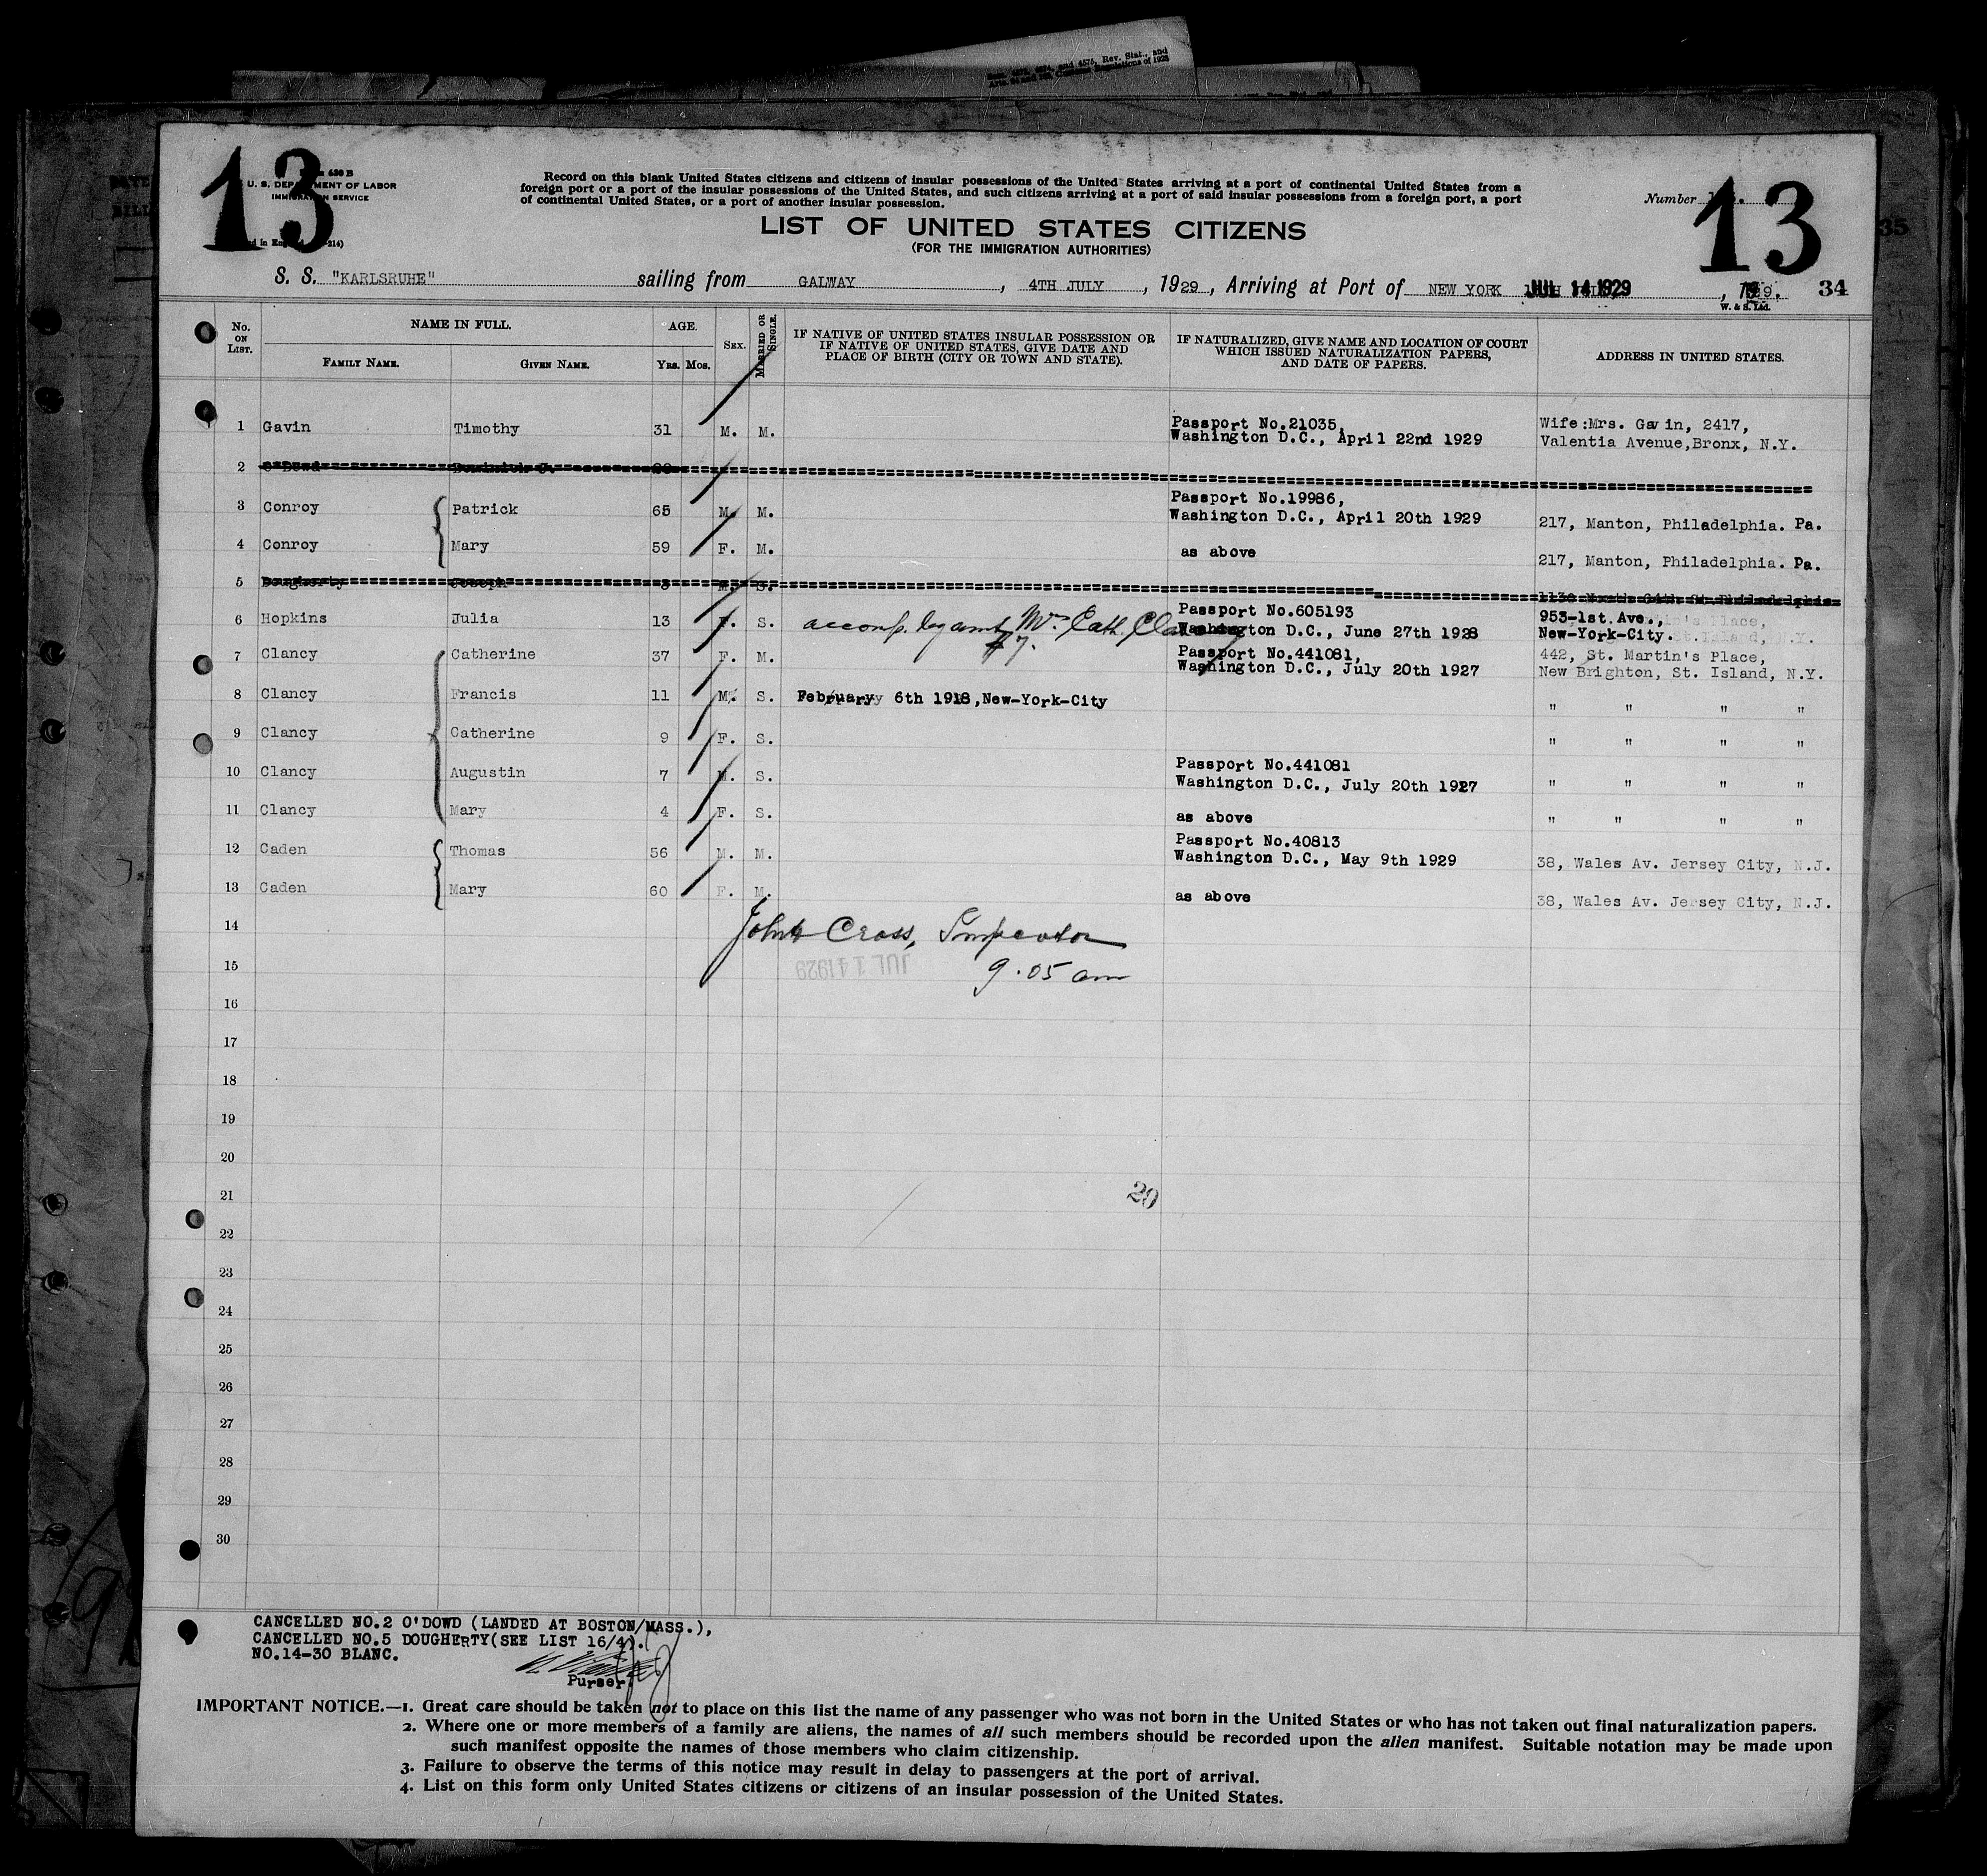 Secs. 4573, 4574, and 4575, Rev. Stat., and
Customs Regulations of 1923
13
638 B
U. S. DEPARTMENT OF LABOR
IMMIGRATION SERVICE
Record on this blank United States citizens and citizens of insular possessions of the United States arriving at a port of continental United States from a
foreign port or a port of the insular possessions of the United States, and such citizens arriving at a port of said insular possessions from a foreign port, a port
of continental United States, or a port of another insular possession.
Number
13
35
LIST OF UNITED STATES CITIZENS
(FOR THE IMMIGRATION AUTHORITIES)
S. S. "KARLSRUHE" sailing from GALWAY, 4TH JULY, 1929, Arriving at Port of NEW YORK JUL 14 1929, 1929. 34
W. & S. Ltd.
No. ON LIST. NAME IN FULL. FAMILY NAME. GIVEN NAME. AGE. YRS. MOS. SEX. MARRIED OR SINGLE. IF NATIVE OF UNITED STATES INSULAR POSSESSION OR IF NATIVE OF UNITED STATES, GIVE DATE AND PLACE OF BIRTH (CITY OR TOWN AND STATE). IF NATURALIZED, GIVE NAME AND LOCATION OF COURT WHICH ISSUED NATURALIZATION PAPERS, AND DATE OF PAPERS. ADDRESS IN UNITED STATES.
1 Gavin Timothy 31 M. M. Passport No.21035, Washington D.C., April 22nd 1929 Wife:Mrs. Gavin, 2417, Valentia Avenue,Bronx, N.Y.
2 O'Dowd Dominick J.
3 Conroy Patrick 65 M. M. Passport No.19986, Washington D.C., April 20th 1929 217, Manton, Philadelphia. Pa.
4 Conroy Mary 59 F. M. as above 217, Manton, Philadelphia. Pa.
5 Dougherty Joseph 3 M. S. Philadelphia
6 Hopkins Julia 13 F. S. accomp. by aunt Mrs Cath. Cla #7. Passport No.605193 Washington D.C., June 27th 1928 953-1st.Ave., New-York-City.
7 Clancy Catherine 37 F. M. Passport No.441081, Washington D.C., July 20th 1927 442, St. Martin's Place, New Brighton, St. Island, N.Y.
8 Clancy Francis 11 M. S. February 6th 1918,New-York-City " " " "
9 Clancy Catherine 9 F. S. " " " "
10 Clancy Augustin 7 M. S. Passport No.441081 Washington D.C., July 20th 1927 " " " "
11 Clancy Mary 4 F. S. as above " " " "
12 Caden Thomas 56 M. M. Passport No.40813 Washington D.C., May 9th 1929 38, Wales Av. Jersey City, N.J.
13 Caden Mary 60 F. M. as above 38, Wales Av. Jersey City, N.J.
14 John Cross, Inspector
15 JUL 14 1929 9.05 am
16
17
18
19
20
21 20
22
23
24
25
26
27
28
29
30
CANCELLED NO.2 O'DOWD (LANDED AT BOSTON/MASS.),
CANCELLED NO.5 DOUGHERTY(SEE LIST 16/4).
NO.14-30 BLANC.
Purser.
IMPORTANT NOTICE.—1. Great care should be taken not to place on this list the name of any passenger who was not born in the United States or who has not taken out final naturalization papers.
2. Where one or more members of a family are aliens, the names of all such members should be recorded upon the alien manifest. Suitable notation may be made upon
such manifest opposite the names of those members who claim citizenship.
3. Failure to observe the terms of this notice may result in delay to passengers at the port of arrival.
4. List on this form only United States citizens or citizens of an insular possession of the United States.